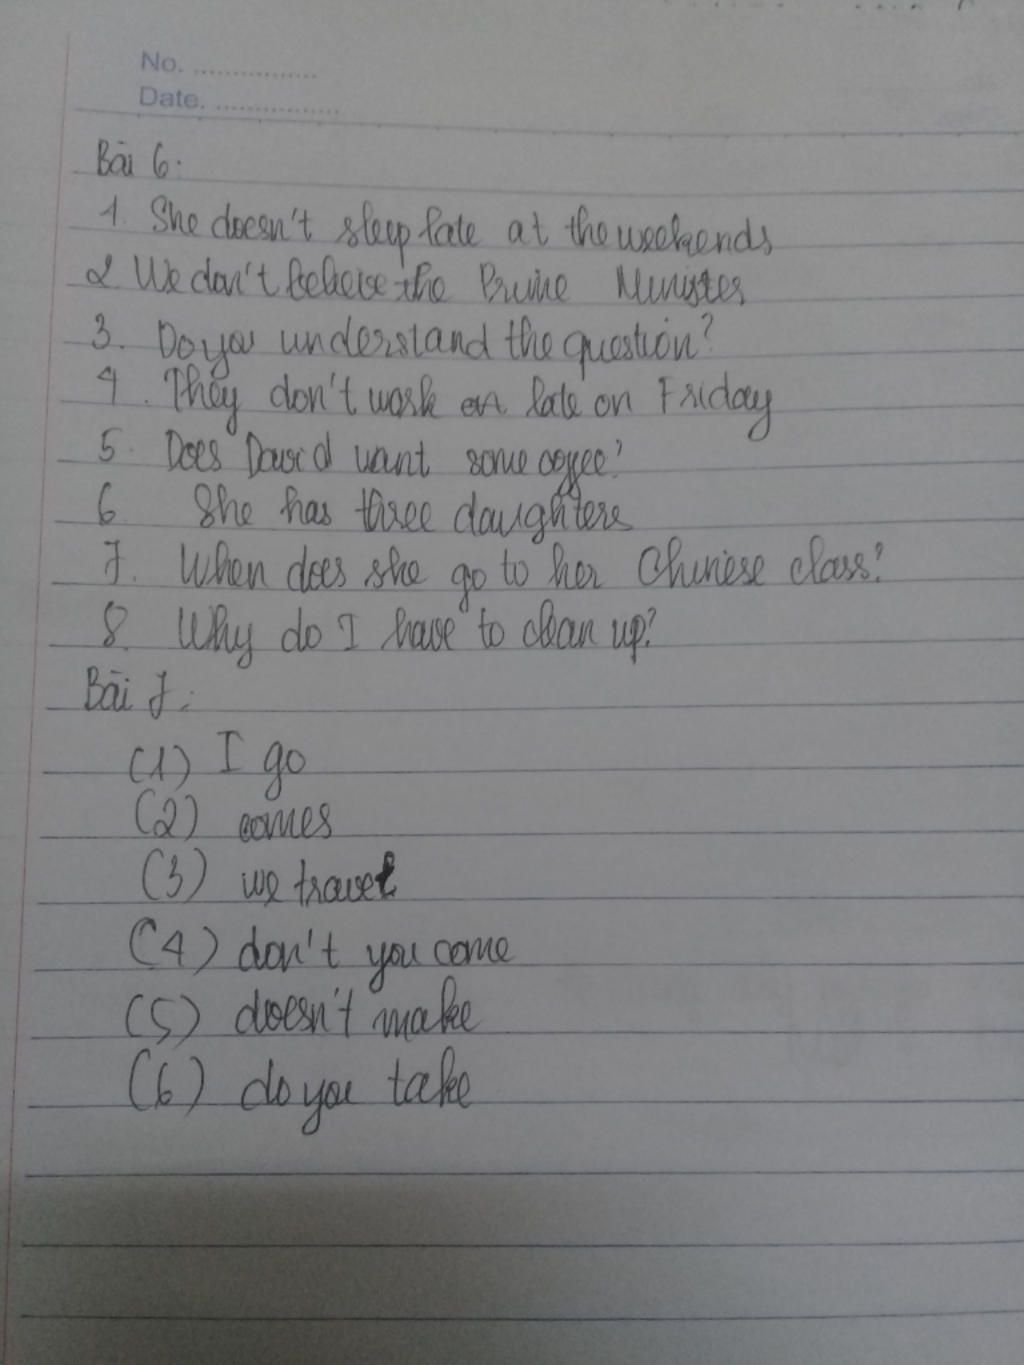 No. ................
Date. ................
Bài 6:
1. She doesn't sleep late at the weekends
2. We don't believe the Prime Minister
3. Do you understand the question?
4. They don't work late on Friday
5. Does David want some coffee?
6. She has three daughters
7. When does she go to her Chinese class?
8. Why do I have to clean up?
Bài 7:
(1) I go
(2) comes
(3) we travel
(4) don't you come
(5) doesn't make
(6) do you take